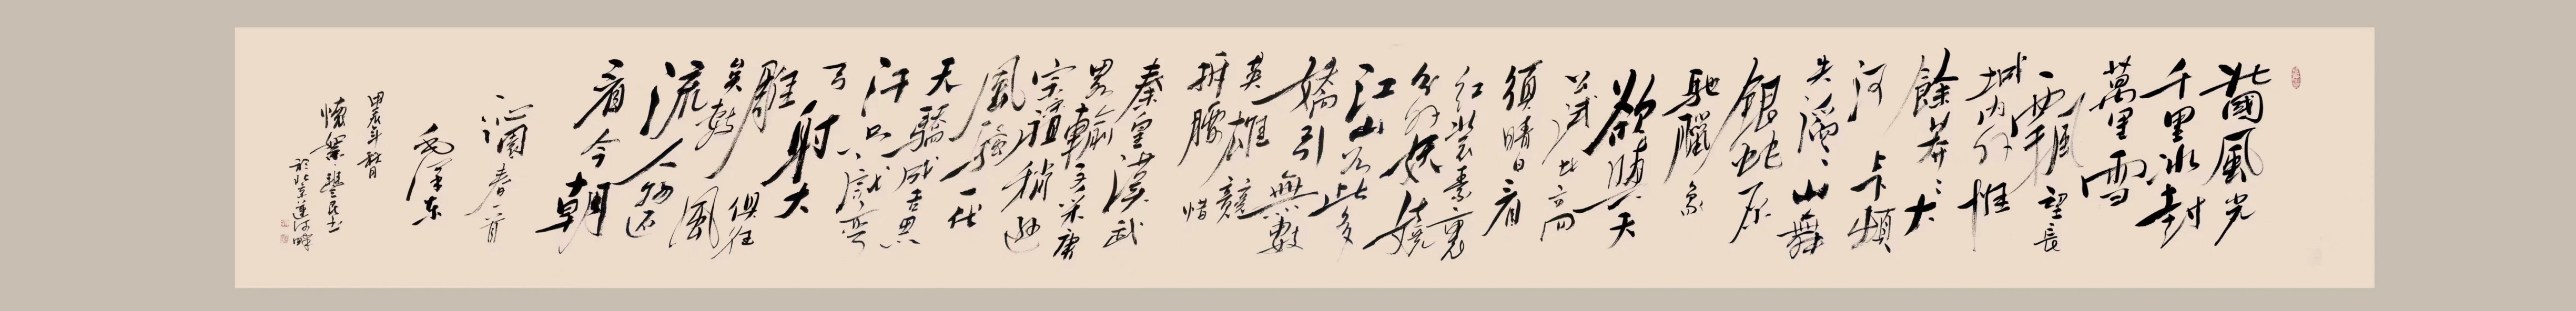 北國風光
千里冰封
萬里雪
飄望長
城内外惟
餘莽々大
河上下頓
失滔々山舞
銀蛇原
馳臘象
欲與天
公試比高
須晴日看
紅裝素裹
分外妖嬈
江山如此多
嬌引無數
英雄競
折腰惜
秦皇漢武
略輸文采唐
宗宋祖稍遜
風騷一代
天驕成吉思
汗只識彎
弓射大
雕
矣數
俱往
流人物還
看今朝
沁園春雪
毛澤東
甲辰年
懷
於北京